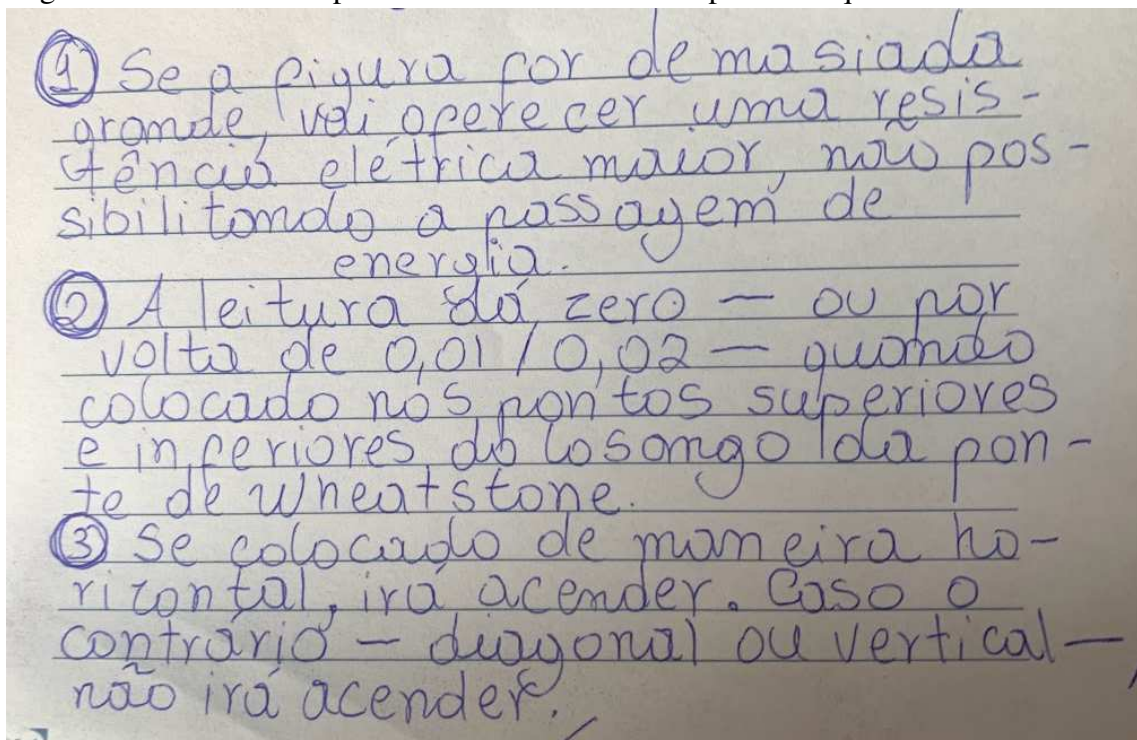 ① Se a figura for demasiada
grande, vai oferecer uma resis-
tência elétrica maior, não pos-
sibilitando a passagem de
energia.
② A leitura dá zero — ou por
volta de 0,01 / 0,02 — quando
colocado nos pontos superiores
e inferiores do losango da pon-
te de Wheatstone.
③ Se colocado de maneira ho-
rizontal, irá acender. Caso o
contrário — diagonal ou vertical —,
não irá acender.